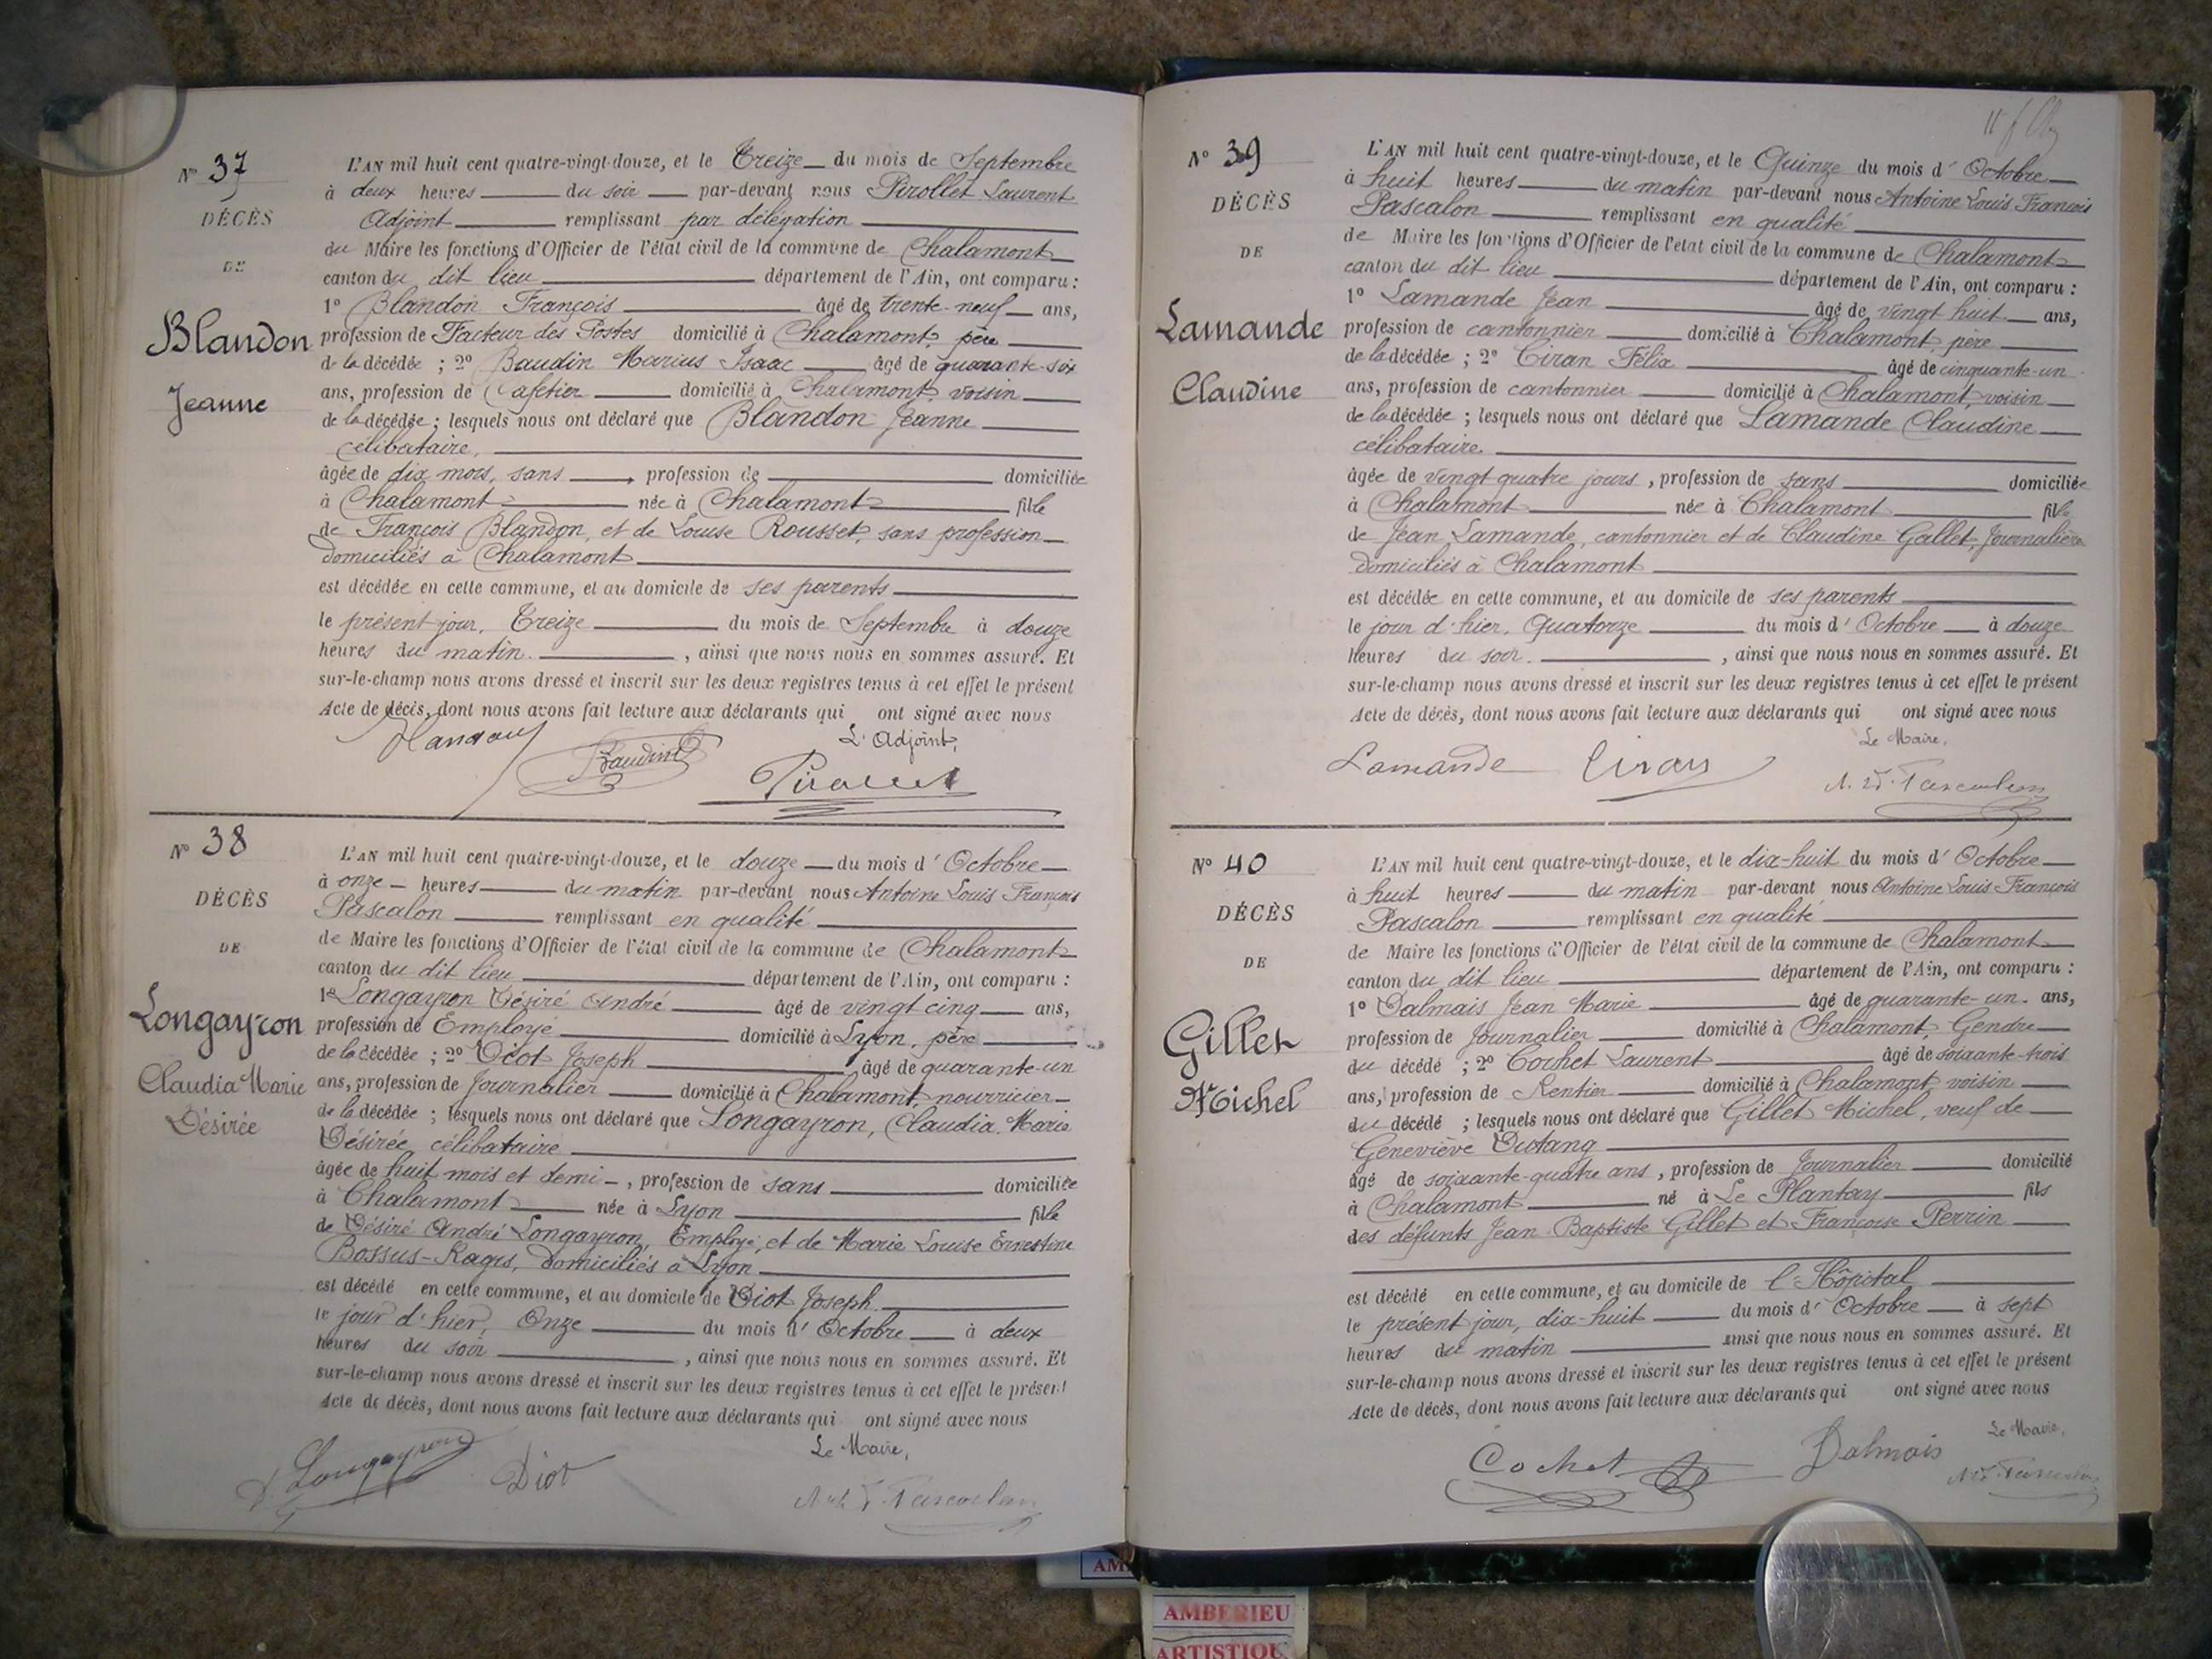 N° 37
DÉCÈS
DE
Blandon
Jeanne
L'AN mil huit cent quatre-vingt-douze, et le Treize du mois de Septembre
à deux heures du soir par-devant nous Pirollet Laurent
Adjoint remplissant par délégation
du Maire les fonctions d'Officier de l'état civil de la commune de Chalamont
canton du dit lieu département de l'Ain, ont comparu :
1° Blandon François âgé de trente-neuf ans,
profession de Facteur des Postes domicilié à Chalamont, père
de la décédée ; 2° Baudin Marius Isaac âgé de quarante-six
ans, profession de Cafetier domicilié à Chalamont, voisin
de la décédée ; lesquels nous ont déclaré que Blandon Jeanne
célibataire,
âgée de dix mois, sans profession de domiciliée
à Chalamont née à Chalamont fille
de François Blandon, et de Louise Rousset, sans profession
domiciliés à Chalamont
est décédée en cette commune, et au domicile de ses parents
le présent jour, Treize du mois de Septembre à douze
heures du matin. , ainsi que nous nous en sommes assuré. Et
sur-le-champ nous avons dressé et inscrit sur les deux registres tenus à cet effet le présent
Acte de décès, dont nous avons fait lecture aux déclarants qui ont signé avec nous
L'Adjoint,
Blandon Baudin Pirollet
N° 38
DÉCÈS
DE
Longayron
Claudia Marie
Désirée
L'AN mil huit cent quatre-vingt-douze, et le douze du mois d' Octobre
à onze heures du matin par-devant nous Antoine Louis François
Pascalon remplissant en qualité
de Maire les fonctions d'Officier de l'état civil de la commune de Chalamont
canton du dit lieu département de l'Ain, ont comparu :
1° Longayron Désiré André âgé de vingt cinq ans,
profession de Employé domicilié à Lyon, père
de la décédée ; 2° Diot Joseph âgé de quarante-un
ans, profession de Journalier domicilié à Chalamont, nourricier
de la décédée ; lesquels nous ont déclaré que Longayron, Claudia Marie
Désirée, célibataire
âgée de huit mois et demi , profession de sans domiciliée
à Chalamont née à Lyon fille
de Désiré André Longayron, Employé, et de Marie Louise Ernestine
Bossus-Rages, domiciliés à Lyon
est décédé en cette commune, et au domicile de Diot Joseph
le jour d'hier, Onze du mois d' Octobre à deux
heures du soir , ainsi que nous nous en sommes assuré. Et
sur-le-champ nous avons dressé et inscrit sur les deux registres tenus à cet effet le présent
Acte de décès, dont nous avons fait lecture aux déclarants qui ont signé avec nous
Le Maire,
D. Longayron Diot
N° 39
DÉCÈS
DE
Lamande
Claudine
L'AN mil huit cent quatre-vingt-douze, et le Quinze du mois d' Octobre
à huit heures du matin par-devant nous Antoine Louis François
Pascalon remplissant en qualité
de Maire les fonctions d'Officier de l'état civil de la commune de Chalamont
canton du dit lieu département de l'Ain, ont comparu :
1° Lamande Jean âgé de vingt huit ans,
profession de cantonnier domicilié à Chalamont, père
de la décédée ; 2° Ciran Félix âgé de cinquante-un
ans, profession de cantonnier domicilié à Chalamont, voisin
de la décédée ; lesquels nous ont déclaré que Lamande Claudine
célibataire.
âgée de vingt quatre jours , profession de sans domiciliée
à Chalamont née à Chalamont fille
de Jean Lamande, cantonnier et de Claudine Gallet, Journalière
domiciliés à Chalamont
est décédée en cette commune, et au domicile de ses parents
le jour d'hier, Quatorze du mois d' Octobre à douze
heures du soir. , ainsi que nous nous en sommes assuré. Et
sur-le-champ nous avons dressé et inscrit sur les deux registres tenus à cet effet le présent
Acte de décès, dont nous avons fait lecture aux déclarants qui ont signé avec nous
Le Maire,
Lamande Ciran
N° 40
DÉCÈS
DE
Gillet
Michel
L'AN mil huit cent quatre-vingt-douze, et le dix-huit du mois d' Octobre
à huit heures du matin par-devant nous Antoine Louis François
Pascalon remplissant en qualité
de Maire les fonctions d'Officier de l'état civil de la commune de Chalamont
canton du dit lieu département de l'Ain, ont comparu :
1° Dalmais Jean Marie âgé de quarante-un ans,
profession de Journalier domicilié à Chalamont, Gendre
du décédé ; 2° Cochet Laurent âgé de soixante-trois
ans, profession de Rentier domicilié à Chalamont, voisin
du décédé ; lesquels nous ont déclaré que Gillet Michel, veuf de
Geneviève Dutang
âgé de soixante-quatre ans , profession de Journalier domicilié
à Chalamont né à Le Plantay fils
des défunts Jean Baptiste Gillet et Françoise Perrin
est décédé en cette commune, et au domicile de l'Hôpital
le présent jour, dix-huit du mois d' Octobre à sept
heures du matin ainsi que nous nous en sommes assuré. Et
sur-le-champ nous avons dressé et inscrit sur les deux registres tenus à cet effet le présent
Acte de décès, dont nous avons fait lecture aux déclarants qui ont signé avec nous
Le Maire,
Cochet Dalmais
AMBERIEU
ARTISTIQU